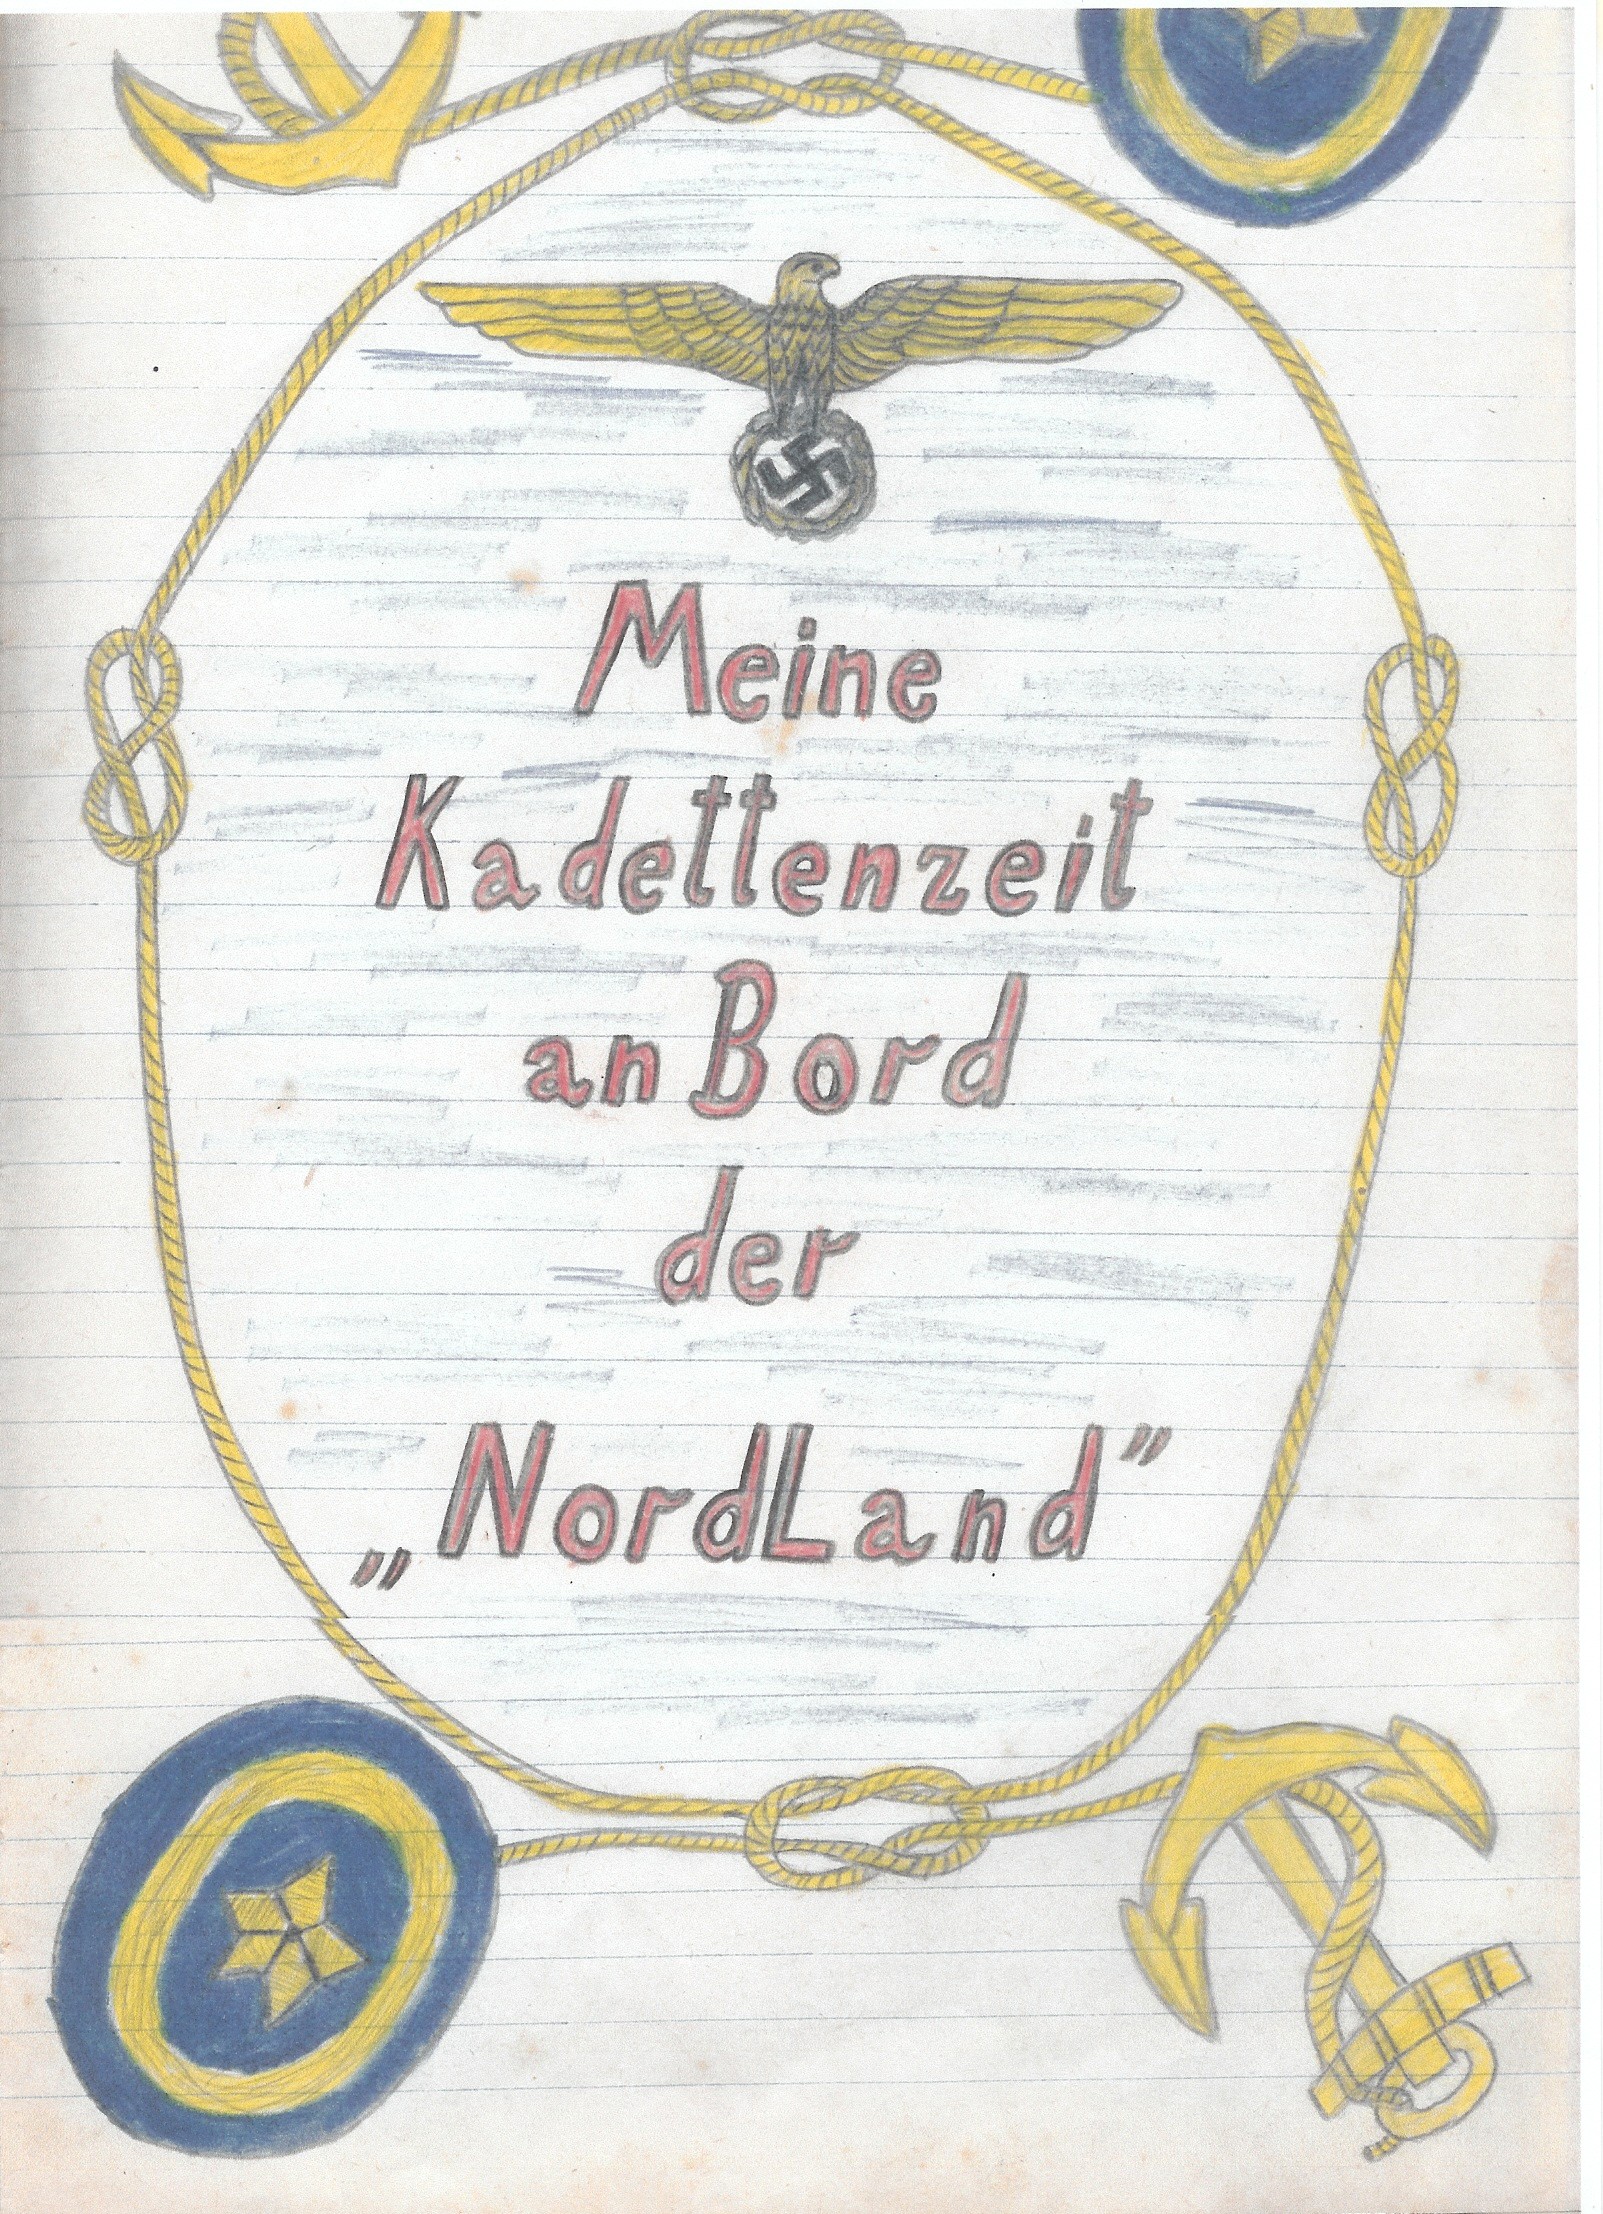 Meine
Kadettenzeit
an Bord
der
„NordLand”